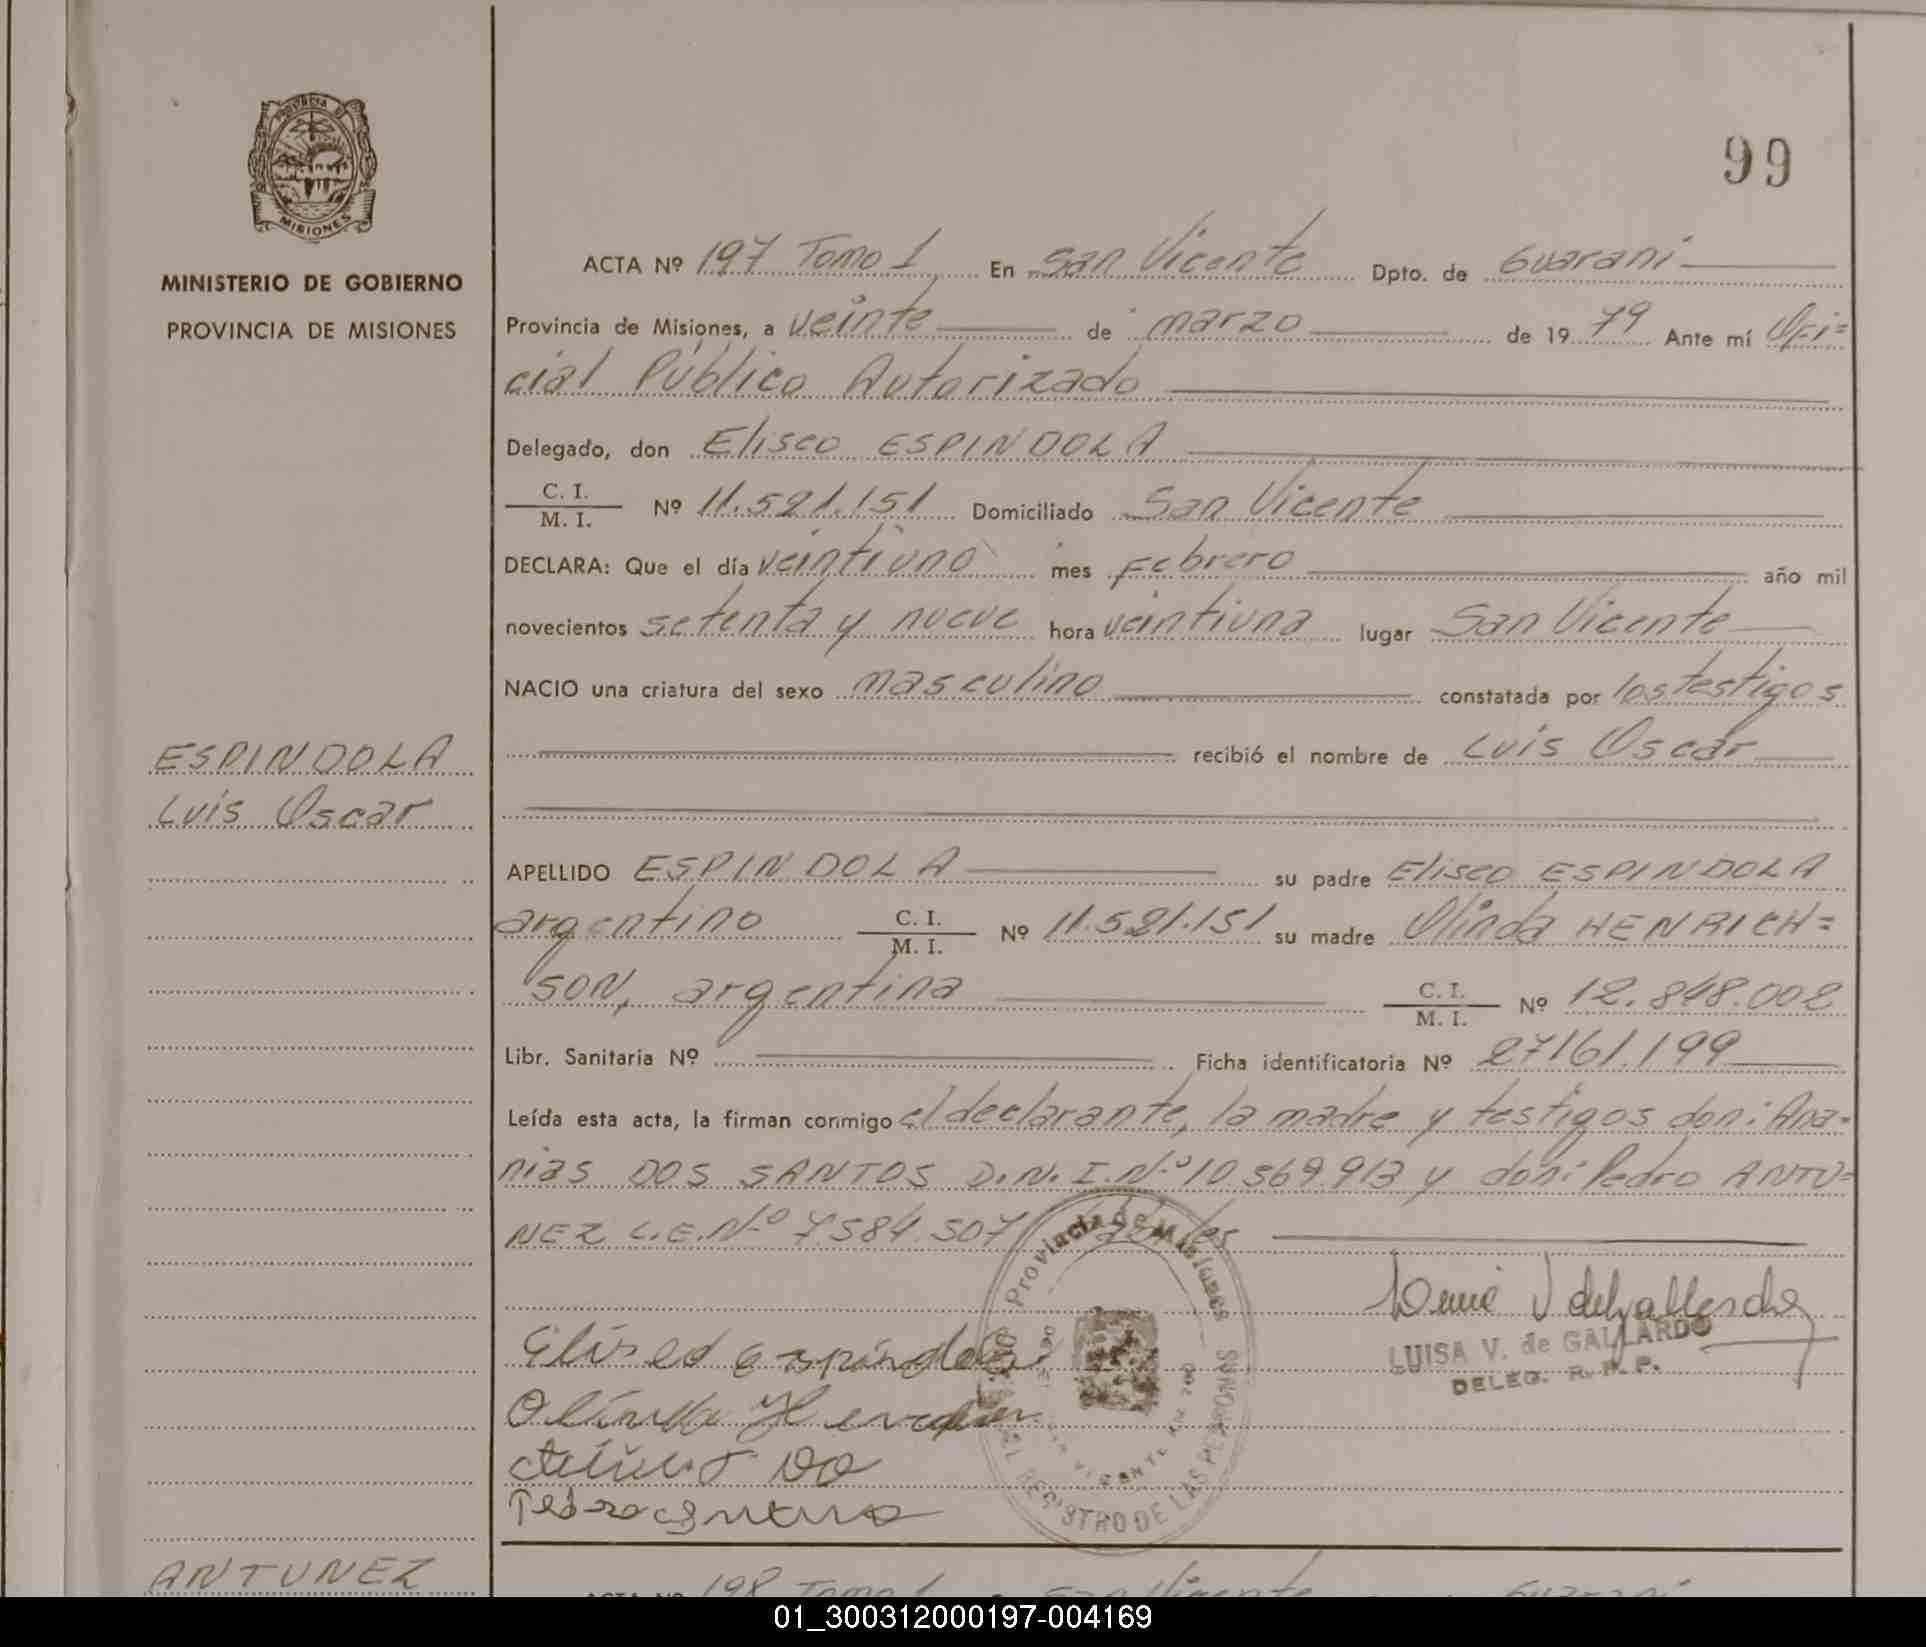 PROVINCIA DE
MISIONES
MINISTERIO DE GOBIERNO
PROVINCIA DE MISIONES
99
ACTA Nº 197 Tomo 1 En San Vicente Dpto. de Guaraní
Provincia de Misiones, a veinte de marzo de 19 79 Ante mí Ofi=
cial Público Autorizado
Delegado, don Eliseo ESPINDOLA
C. I.
M. I. Nº 11.521.151 Domiciliado San Vicente
DECLARA: Que el día veintiuno mes Febrero año mil
novecientos setenta y nueve hora veintiuna lugar San Vicente
NACIO una criatura del sexo masculino constatada por los testigos
recibió el nombre de Luis Oscar
ESPINDOLA
Luis Oscar
APELLIDO ESPINDOLA su padre Eliseo ESPINDOLA
argentino C. I. M. I. Nº 11.521.151 su madre Olinda HENRICH=
SON, argentina C. I. M. I. Nº 12.848.002
Libr. Sanitaria Nº Ficha identificatoria Nº 27161.199
Leída esta acta, la firman conmigo el declarante, la madre y testigos don: Ana=
nias DOS SANTOS D.N.I.Nº 10.569.913 y don: Pedro ANTU=
NEZ L.E.Nº 7.584.507
Provincia de Misiones
REGISTRO DE LAS PERSONAS
SAN VICENTE
LUISA V. de GALLARDO
DELEG. R. P. P.
Eliseo espindola
Olinda
Pedro
ANTUNEZ
ACTA Nº 198 Tomo 1 San Vicente Guaraní
01_300312000197-004169